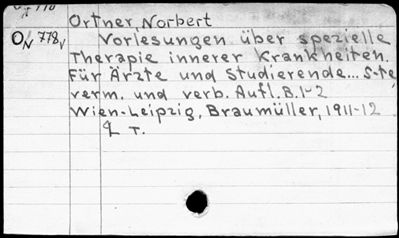 Ortner, Norbert
O/N 778/V Vorlesungen über spezielle
Therapie innerer Krankheiten.
Für Ärzte und Studierende... 5-te
verm. und verb. Aufl. B. 1-2
Wien-Leipzig, Braumüller, 1911-12
2 T.